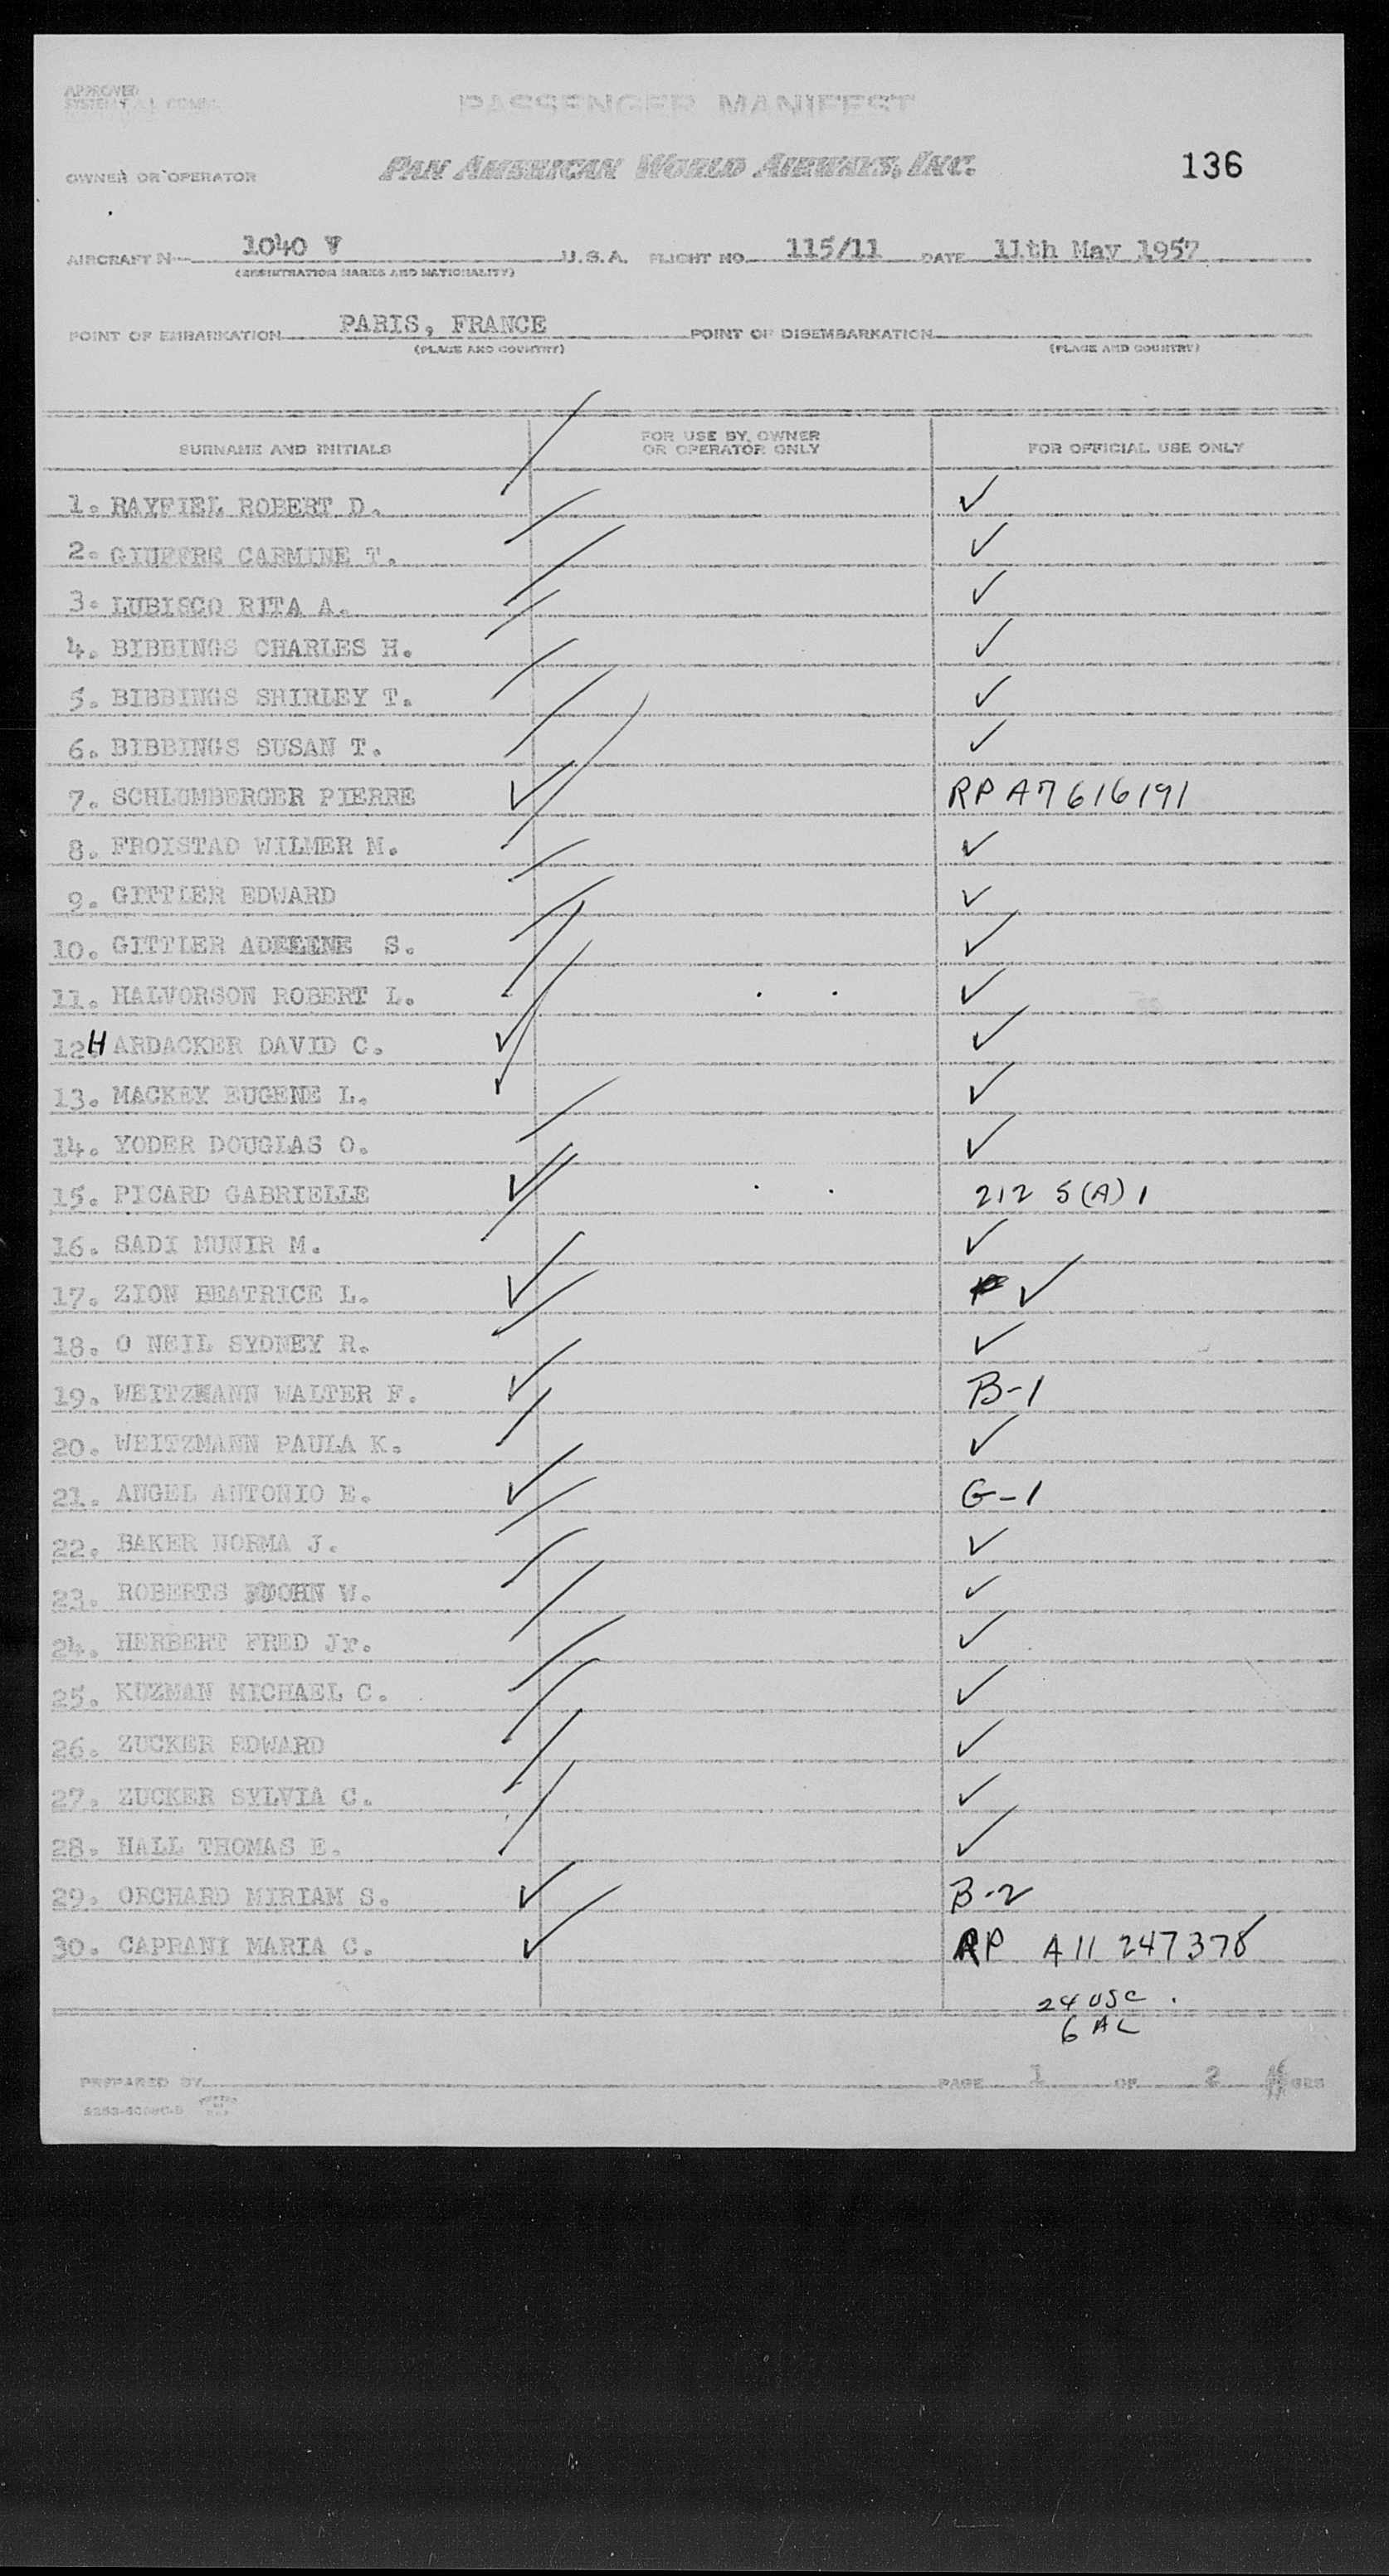 APPROVED
PASSENGER MANIFEST
OWNER OR OPERATOR PAN AMERICAN WORLD AIRWAYS, INC. 136
AIRCRAFT N 1040 V U.S.A. FLIGHT NO. 115/11 DATE 11th May 1957
(REGISTRATION MARKS AND NATIONALITY)
POINT OF EMBARKATION PARIS, FRANCE POINT OF DISEMBARKATION
(PLACE AND COUNTRY) (PLACE AND COUNTRY)
SURNAME AND INITIALS FOR USE BY OWNER OR OPERATOR ONLY FOR OFFICIAL USE ONLY
1. RAYFIEL ROBERT D. ✓
2. GIUFFRE CARMINE T. ✓
3. LUBISCO RITA A. ✓
4. BIBBINGS CHARLES H. ✓
5. BIBBINGS SHIRLEY T. ✓
6. BIBBINGS SUSAN T. ✓
7. SCHLUMBERGER PIERRE ✓ RP A7616191
8. FROISTAD WILMER M. ✓
9. GITTLER EDWARD ✓
10. GITTLER ADELENE S. ✓
11. HALVORSON ROBERT L. ✓
12. HARDACKER DAVID C. ✓ ✓
13. MACKEY EUGENE L. ✓ ✓
14. YODER DOUGLAS O. ✓
15. PICARD GABRIELLE ✓ 212 5(A)1
16. SADI MUNIR M. ✓
17. ZION BEATRICE L. ✓ ✓
18. O NEIL SYDNEY R. ✓
19. WEITZMANN WALTER F. ✓ B-1
20. WEITZMANN PAULA K. ✓
21. ANGEL ANTONIO E. ✓ G-1
22. BAKER NORMA J. ✓
23. ROBERTS JOHN W. ✓
24. HERBERT FRED Jr. ✓
25. KUZMAN MICHAEL C. ✓
26. ZUCKER EDWARD ✓
27. ZUCKER SYLVIA C. ✓
28. HALL THOMAS E. ✓
29. ORCHARD MIRIAM S. ✓ B-2
30. CAPRANI MARIA C. ✓ RP A11 247378
24 USC.
6 AL
PREPARED BY PAGE 1 OF 2